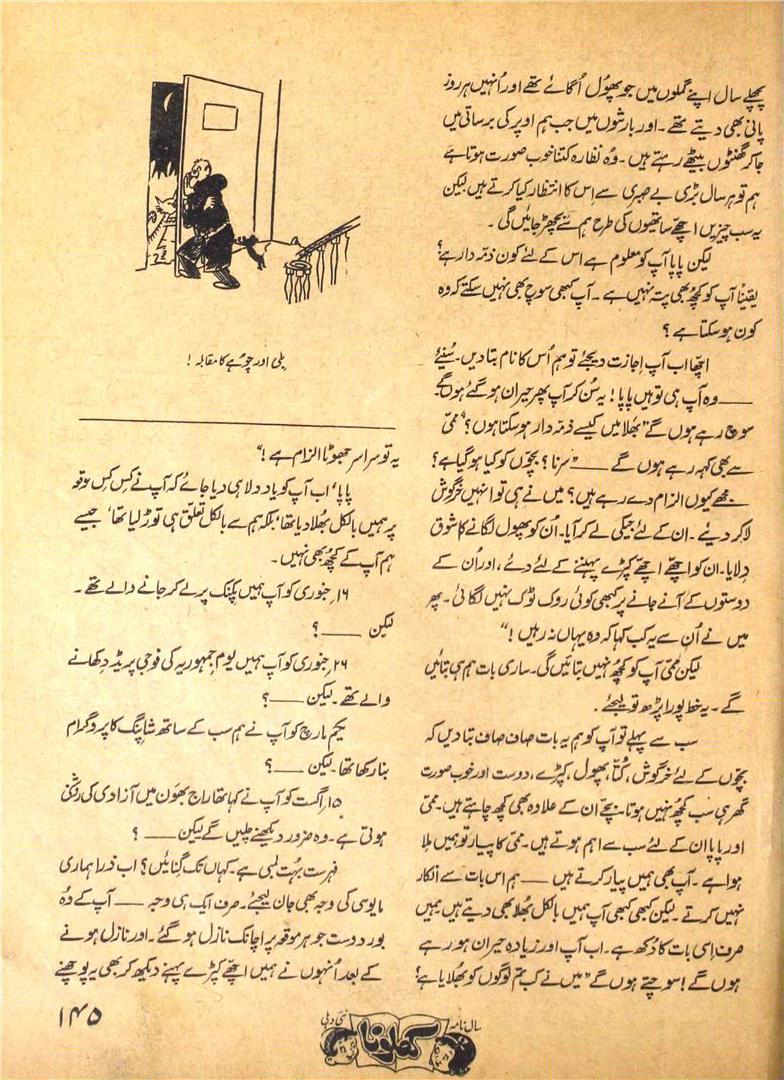 پچھلے سال اپنے گملوں میں جو پھول اُگائے تھے اور اُنہیں ہر روز
پانی بھی دیتے تھے۔ اور بارشوں میں جب ہم اوپر کی برساتی میں
جا کر گھنٹوں بیٹھے رہتے ہیں۔ وہ نظارہ کتنا خوب صورت ہوتا ہے
ہم تو ہر سال بڑی بے صبری سے اِس کا انتظار کیا کرتے ہیں لیکن
یہ سب چیزیں اچھے ساتھیوں کی طرح ہم سے بچھڑ جائیں گی۔
لیکن پاپا آپ کو معلوم ہے اس کے لئے کون ذمّہ دار ہے؟
یقیناً آپ کو کچھ بھی پتہ نہیں ہے۔ آپ کبھی سوچ بھی نہیں سکتے کہ وہ
کون ہو سکتا ہے؟
اچھا اب آپ اجازت دیجئے تو ہم اُس کا نام بتا دیں۔ سُنیئے
——وہ آپ ہی تو ہیں پاپا! یہ سُن کر آپ پھر حیران ہو گئے ہوں گے۔
سوچ رہے ہوں گے "بھلا میں کیسے ذمّہ دار ہو سکتا ہوں؟" ممّی
سے بھی کہہ رہے ہوں گے —— "سرنا؟ بچّوں کو کیا ہو گیا ہے؟
مجھے کیوں الزام دے رہے ہیں؟ میں نے ہی تو انہیں خرگوش
لا کر دیئے۔ ان کے لئے جیکی لے کر آیا۔ اُن کو پھول لگانے کا شوق
دِلایا۔ ان کو اچھے اچھے کپڑے پہننے کے لئے دئے، اور اُن کے
دوستوں کے آنے جانے پر کبھی کوئی روک ٹوک نہیں لگائی۔ پھر
میں نے اُن سے یہ کب کہا کہ وہ یہاں نہ رہیں!"
لیکن ممّی آپ کو کچھ نہیں بتائیں گی۔ ساری بات ہم ہی بتائیں
گے۔ یہ خط پورا پڑھ تو لیجئے۔
سب سے پہلے تو آپ کو ہم یہ بات صاف صاف بتا دیں کہ
بچّوں کے لئے خرگوش، کتّا، پھول، کپڑے، دوست اور خوب صورت
گھر ہی سب کچھ نہیں ہوتا۔ بچّے ان کے علاوہ بھی کچھ چاہتے ہیں۔ ممّی
اور پاپا ان کے لئے سب سے اہم ہوتے ہیں۔ ممّی کا پیار تو ہمیں ملا
ہوا ہے۔ آپ بھی ہمیں پیار کرتے ہیں —— ہم اس بات سے انکار
نہیں کرتے۔ لیکن کبھی کبھی آپ ہمیں بالکل بُھلا بھی دیتے ہیں ہمیں
صرف اِسی بات کا دُکھ ہے۔ اب آپ اور زیادہ حیران ہو رہے
ہوں گے! سوچتے ہوں گے "میں نے کب تم لوگوں کو بُھلایا ہے؟
بلی اور چوہے کا مقابلہ!
یہ تو سراسر جھوٹا الزام ہے!"
پاپا، اب آپ کو یاد دلا ہی دیا جائے کہ آپ نے کِس کِس موقع
پر ہمیں بالکل بُھلا دیا تھا، بلکہ ہم سے بالکل تعلق ہی توڑ لیا تھا، جیسے
ہم آپ کے کچھ بھی نہیں۔
۱۶؍ جنوری کو آپ ہمیں پکنک پر لے کر جانے والے تھے۔
لیکن ——؟
۲۶؍ جنوری کو آپ ہمیں یومِ جمہوریہ کی فوجی پریڈ دِکھانے
والے تھے۔ لیکن ——؟
یکم مارچ کو آپ نے ہم سب کے ساتھ شاپنگ کا پروگرام
بنا رکھا تھا۔ لیکن ——؟
۱۵؍ اگست کو آپ نے کہا تھا راج بھون میں آزادی کی روشنی
ہوتی ہے۔ وہ ضرور دیکھنے چلیں گے لیکن ——؟
فہرست بہُت لمبی ہے۔ کہاں تک گِنائیں؟ اب ذرا ہماری
مایوسی کی وجہ بھی جان لیجئے۔ صرف ایک ہی وجہ —— آپ کے وُہ
بور دوست جو ہر موقعہ پر اچانک نازل ہو گئے۔ اور نازل ہونے
کے بعد اُنہوں نے ہمیں اچھے کپڑے پہنے دیکھ کر بھی یہ پوچھنے
سال نامہ کھلونا نئی دہلی
۱۴۵